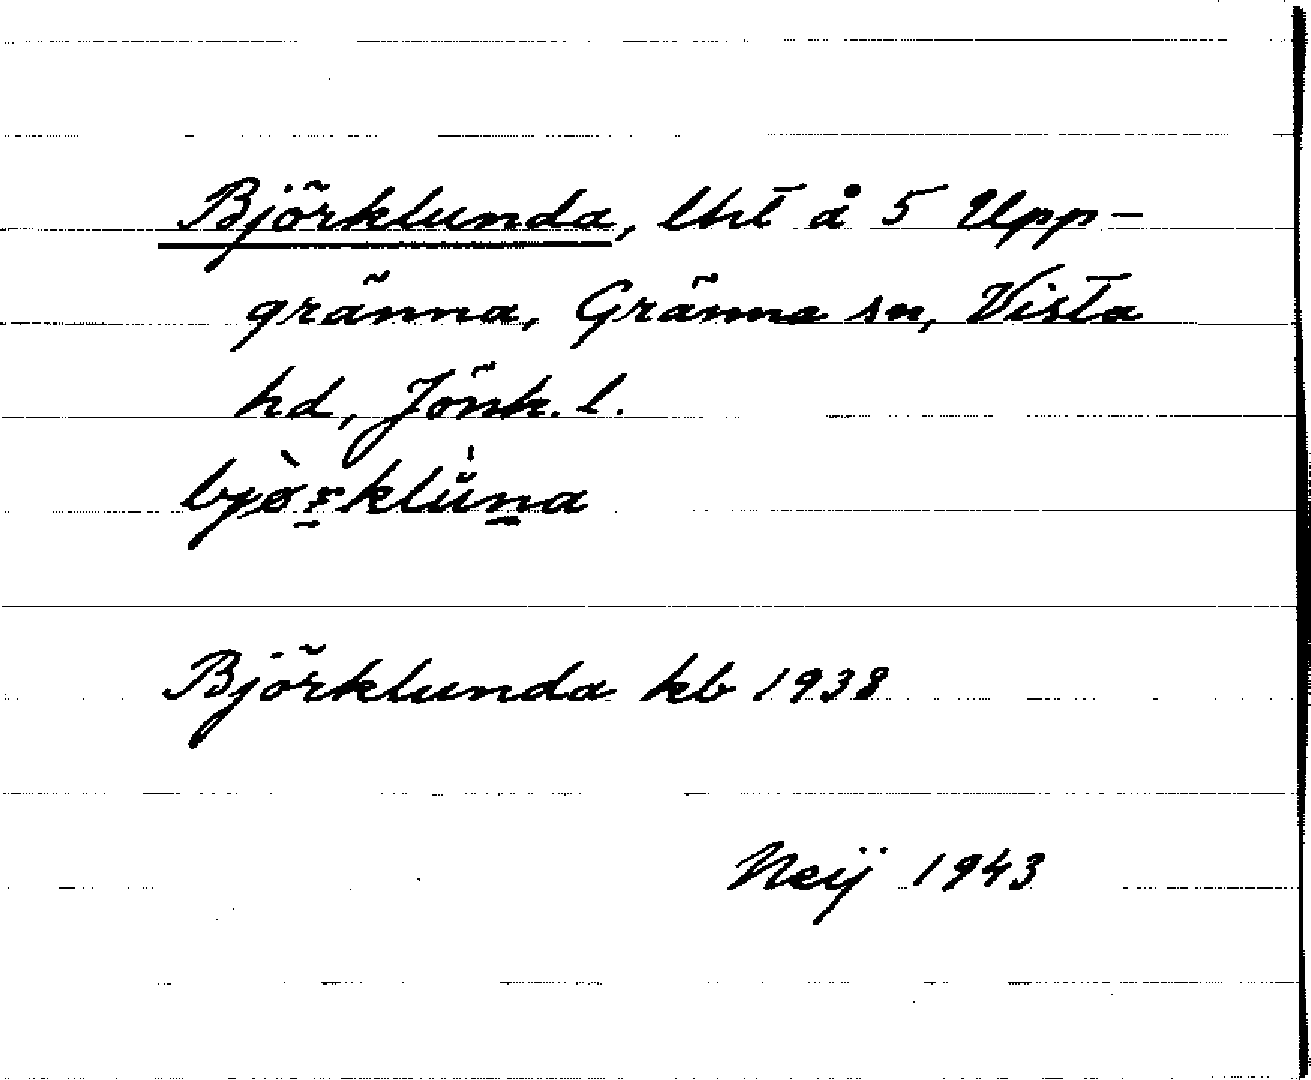 Björklunda, lht å 5 Upp-
gränna, Gränna sn, Vista
hd, Jönk. l.
bjö̀r̲klu̇̀n̲a
Björklunda kb 1938
Neij 1943